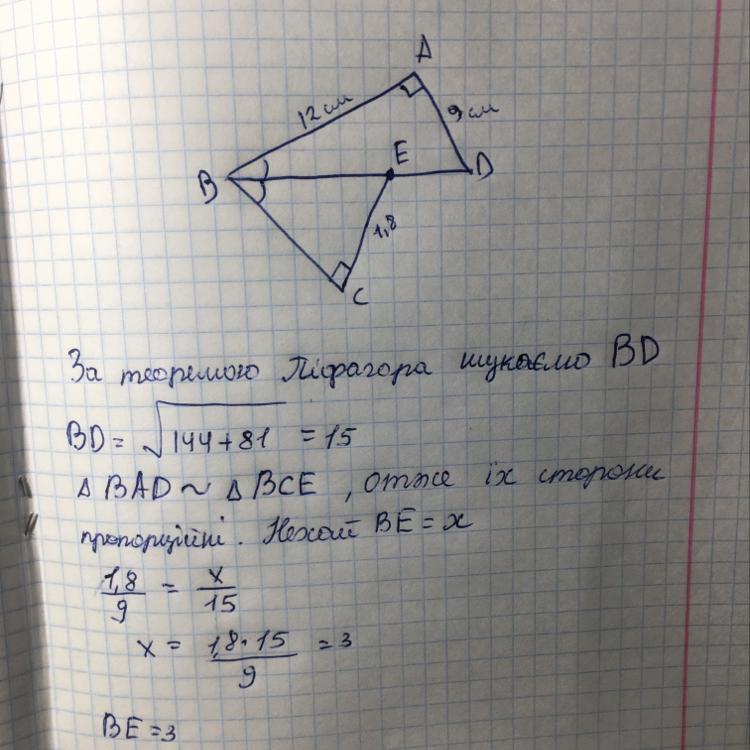 A
12 см
9 см
B
E
D
1,8
C
За теоремою Піфагора шукаємо BD
BD = √144+81 = 15
Δ BAD ~ Δ BCE , отже їх сторони
пропорційні. Нехай BE = x
1,8/9 = x/15
x = 1,8·15/9 = 3
BE = 3